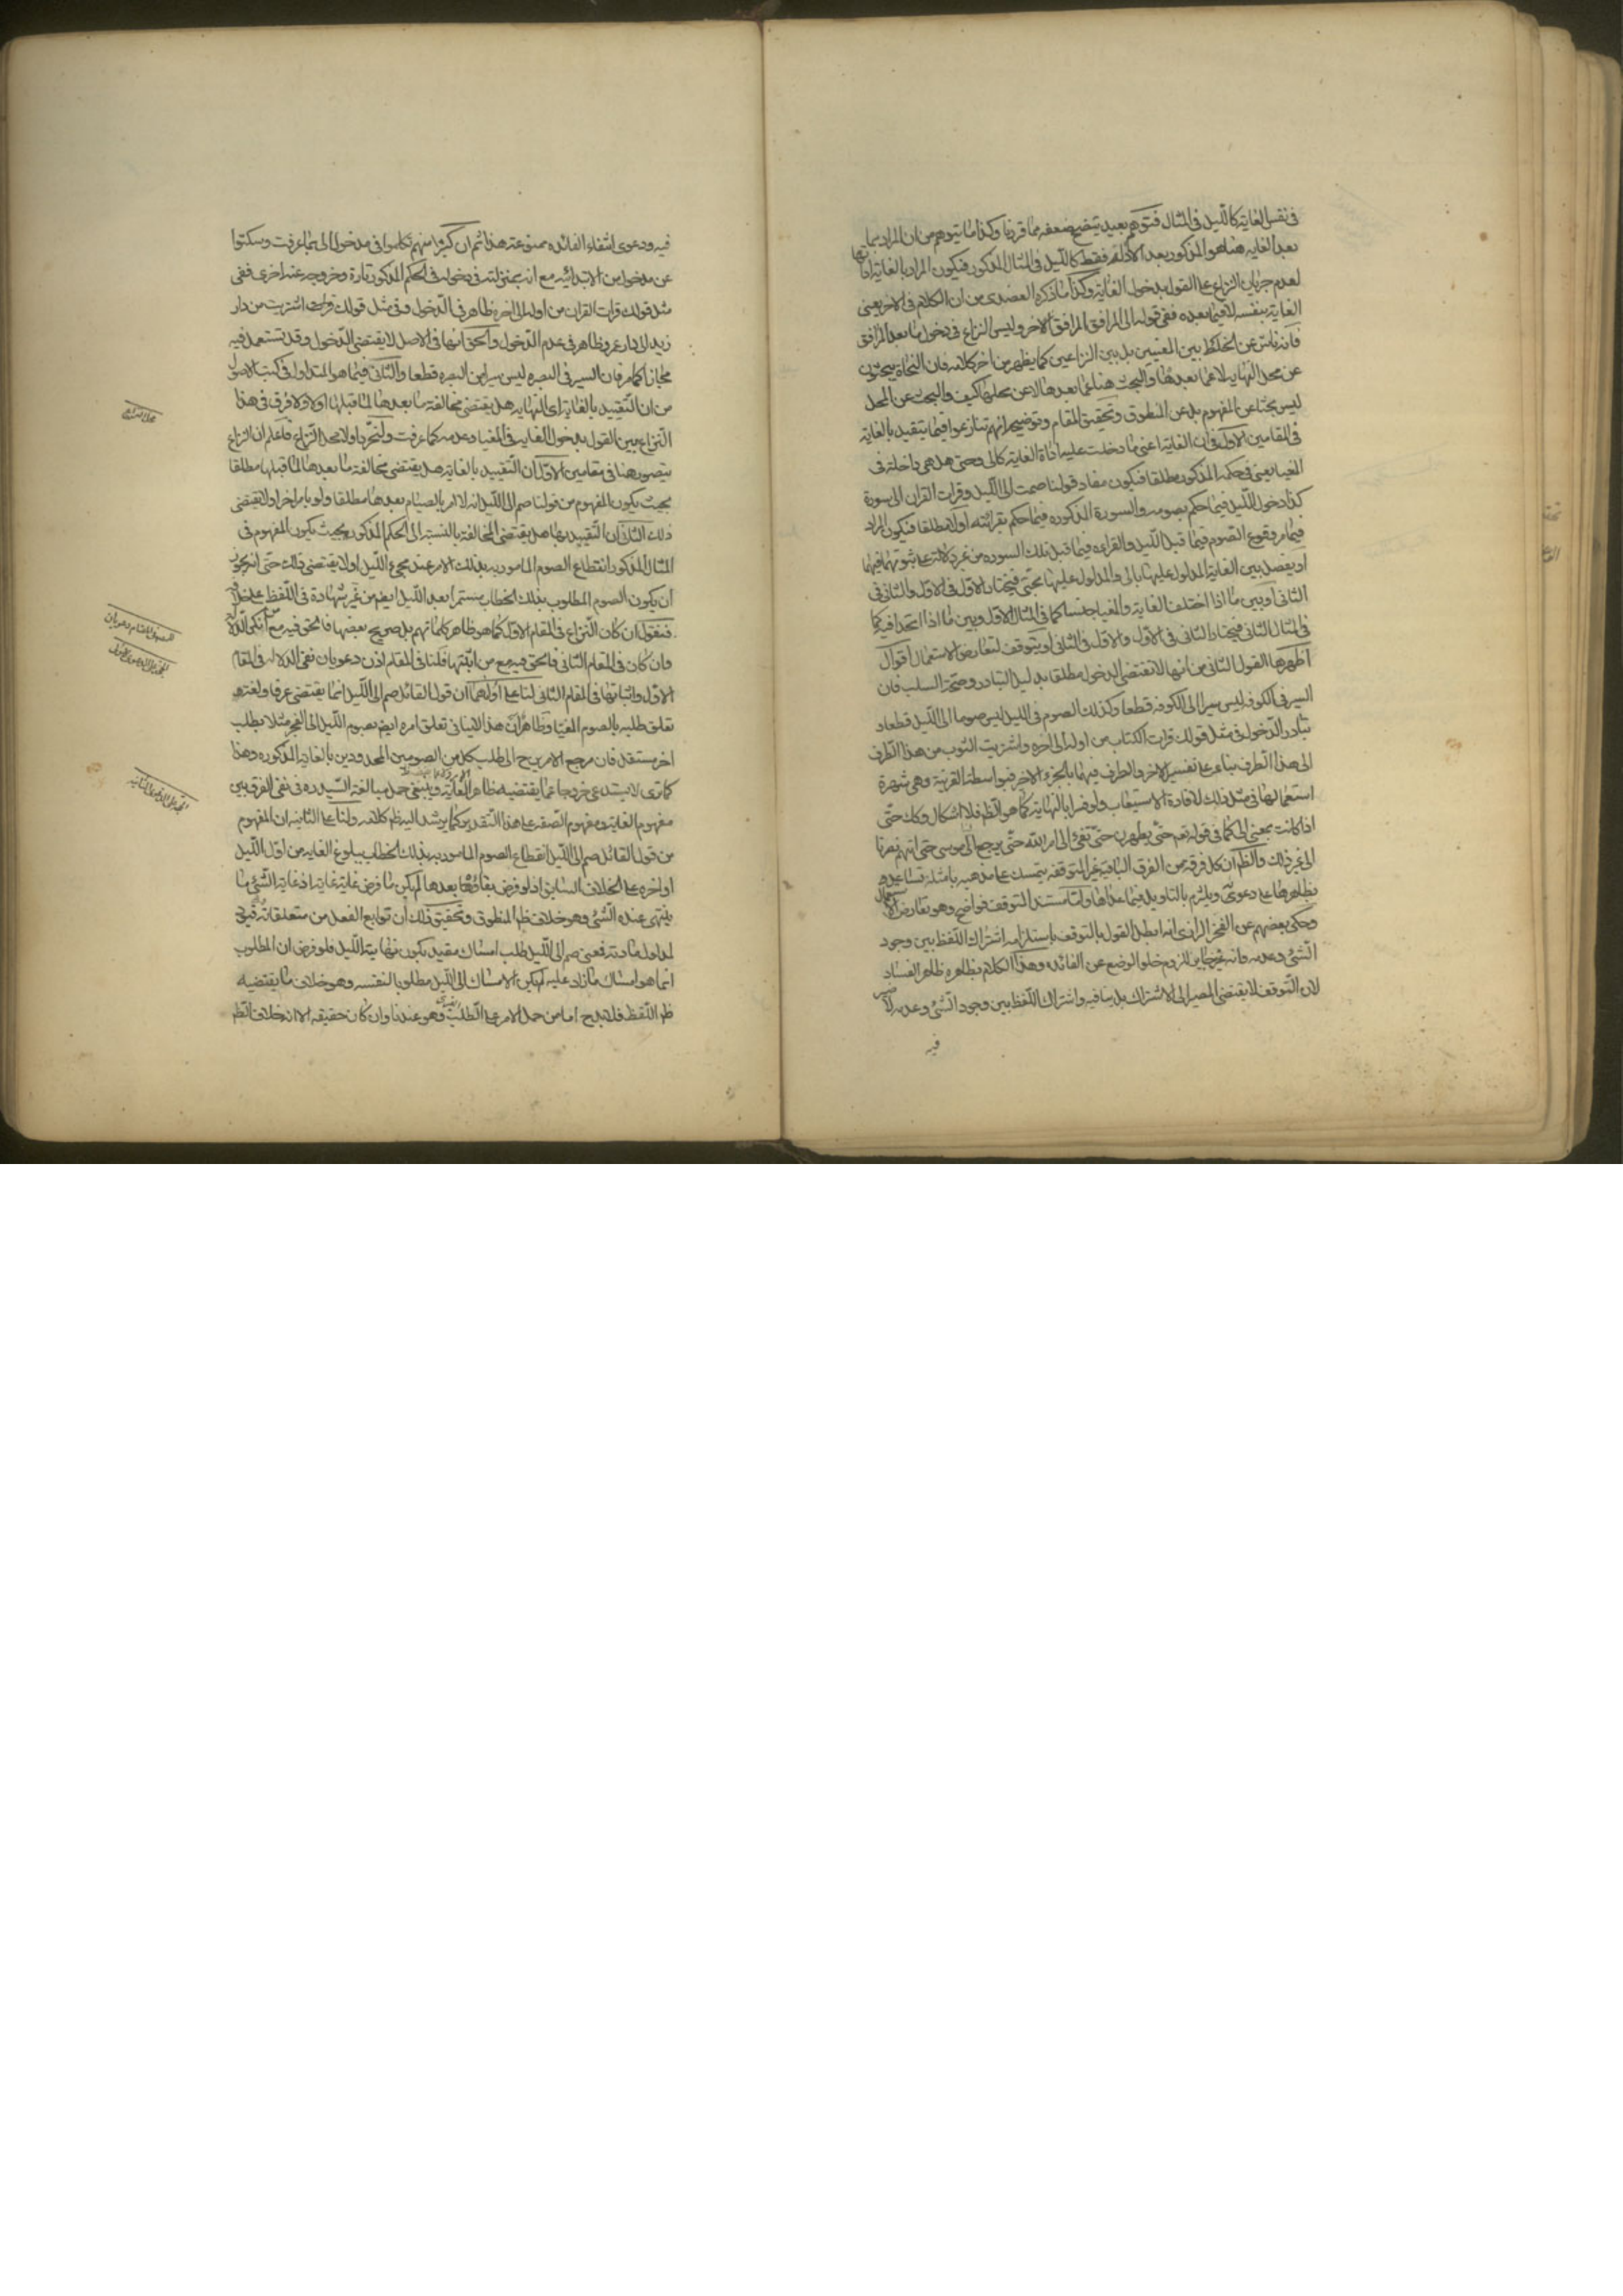 في نفس الغاية كاللّيل في المثال فتوهم بعيد يتضح ضعفه مما قررنا وكذا ما يتوهم من ان المراد بما
بعد الغايه هنا هو المذكور بعد الاداة فقط كاللّيل في المثال المذكور فيكون المراد بالغاية اداتها
لعدم جريان النزاع على القول بدخول الغاية وكذا ما ذكره العضدى من ان الكلام في الاخر يعنى
الغاية بنفسه لا فيما بعده ففى قوله الى المرافق المرافق الاخر وليس النزاع في دخول ما بعد المرافق
فانه ناش عن الخلط بين المعنيين بل بين النزاعين كما يظهر من اخر كلامه فان النحاة يبحثون
عن محل النهاية لا عما بعدها والبحث هنا عما بعدها لا عن محلها كيف والبحث عن المحل
ليس بحثا عن المفهوم بل عن المنطوق وتحقيق المقام وتوضيحه انهم تنازعوا فيما يتقيد بالغاية
في المقامين الاول في ان الغاية اعنى ما دخلت عليه اداة الغاية كالى وحتى هل هى داخلة في
المغيا يعنى في حكمه المذكور مطلقا فيكون مفاد قولنا صمت الى اللّيل وقرات القران الى سورة
كذا دخول اللّيل فيما حكم بصومه والسورة المذكوره فيما حكم بقرائته اولا مطلقا فيكون المراد
فيما مر وقوع الصّوم فيما قبل اللّيل والقراءه فيما قبل تلك السوره من غير دلالة على ثبوتهما فيهما
او يفصل بين الغاية المدلول عليها بالى والمدلول عليها بحتى فيختار الاول في الاول والثانى في
الثانى او بين ما اذا اختلف الغاية والمغيا جنسا كما في المثال الاول وبين ما اذا اتحدا فيه كما
في المثال الثانى فيختار الثانى في الاول والاول في الثانى او يتوقف لتعارض الاستعمال اقوال
اظهرها القول الثانى من انها لا تقتضى الدخول مطلقا بدليل التبادر وصحّة السلب فان
السير في الكوفه ليس سيرا الى الكوفه قطعا وكذلك الصوم في الليل ليس صوما الى اللّيل قطعا و
تبادر الدّخول في مثل قولك قرات الكتاب من اوله الى اخره واشتريت الثوب من هذا الطّرف
الى هذا الطّرف بناء على تفسير الاخر والطرف فيهما بالجزء الاخير فبواسطة القرينة وهى شهرة
استعمالها في مثل ذلك لافادة الاستيعاب ولو فسرا بالنهاية كما هو الظّ فلا اشكال وكك حتّى
اذا كانت بمعنى الى كما في قوله تعم حتّى يطهرن حتّى تفئ الى امر اللّه حتّى يرجع الى موسى حتى اتيهم نصرنا
الى غير ذلك والظّ ان كل فرقة من الفرق الباقية غير المتوقفه يتمسك على مذهبه بامثلة تساعده
بظاهرها على دعوىه ويلتزم بالتاويل فيما عداها وامّا مستند التوقف فواضح وهو تعارض الاستعمال
وحكى بعضهم عن الفخر الرازى انه ابطل القول بالتوقف باستلزامه اشتراك اللّفظ بين وجود
الشّئ وعدمه وانه غير جايز للزوم خلو الوضع عن الفائده وهذا الكلام بظاهره ظاهر الفساد
لان التّوقف لا يقتضى المصير الى الاشتراك بل ينافيه واشتراك اللّفظ بين وجود الشّئ وعدمه لا ضير
فيه
فيه ودعوى انتفاء الفائده ممنوعة هذا ثم ان كثيرا منهم تكلموا في مدخول الى بما عرفت وسكتوا
عن مدخول من الابتدائيه مع انه بمنزلته في دخوله في الحكم المذكور تارة وخروجه عنه اخرى ففى
مثل قولك قرات القران من اوله الى اخره ظاهر في الدّخول وفى مثل قولك اشتريت من دار
زيد الى دار عمرو ظاهر في عدم الدّخول والحق انها في الاصل لا يقتضى الدّخول وقد تستعمل فيه
مجازا كما مر فان السير في البصره ليس سيرا من البصره قطعا والثّانى فيما هو المتداول في كتب الاصول
من ان التّقييد بالغاية اى النهايه هل يقتضى مخالفة ما بعدها لما قبلها اولا ولا فرق في هذا
النّزاع بين القول بدخول الغاية في المغيا وعدمه كما عرفت ولنحرّر اولا محل النّزاع فاعلم ان النزاع
يتصور هنا في مقامين الاول ان التّقييد بالغاية هل يقتضى مخالفة ما بعدها لما قبلها مطلقا
بحيث يكون المفهوم من قولنا صم الى اللّيل انه لا امر بالصيام بعدها مطلقا ولو بامر اخر اولا يقتضى
ذلك الثانى ان التّقييد بها هل يقتضى المخالفة بالنسبة الى الحكم المذكور بحيث يكون المفهوم في
المثال المذكور انقطاع الصوم المامور به بذلك الامر عند مجئ اللّيل اولا يقتضى ذلك حتّى انه يجوز
ان يكون الصوم المطلوب بذلك الخطاب مستمرا بعد اللّيل ايضم من غير شهادة في اللّفظ على خلافه
فنقول ان كان النّزاع في المقام الاول كما هو ظاهر كلماتهم بل صريح بعضها فالحق فيه مع من انكر الدلالة
وان كان في المقام الثانى فالحق فيه مع من اثبتها فلنا في المقام اذن دعويان نفى الدلاله في المقام
الاول واثباتها في المقام الثانى لنا على اولهما ان قول القائل صم الى اللّيل انما يقتضى عرفا ولغة
تعلق طلبه بالصوم المغيّا وظاهر ان هذا لا ينافى تعلق امره ايضم بصوم اللّيل الى الفجر مثلا بطلب
اخر مستقل فان مرجع الامر ح الى طلب كل من الصومين المحدودين بالغاية المذكوره وهذا
كما ترى لا يستدعى خروجا عما يقتضيه ظاهر الغاية وينبغى حمل مبالغة السّيد ره في نفى الفرق بين
مفهوم الغاية ومفهوم الصّفة على هذا التقدير كما يرشد اليه ظم كلامه ولنا على الثانيه ان المفهوم
من قول القائل صم الى اللّيل انقطاع الصوم المامور به بذلك الخطاب ببلوغ الغايه من اول اللّيل
او اخره على الخلاف السابق اذ لو فرض بقاؤه بعدها لم يكن ما فرض غاية غاية اذ غاية الشّئ ما
ينتهى عنده الشّئ وهو خلاف ظم المنطوق وتحقيق ذلك ان توابع الفعل من متعلقاته قيود
لمدلول مادته فمعنى صم الى اللّيل طلب امساك مقيد بكون نهايته اللّيل فلو فرض ان المطلوب
انما هو امساك ما زاد عليه لم يكن الامساك الى اللّيل مطلوبا لنفسه وهو خلاف ما يقتضيه
ظم اللّفظ فلا بد ح اما من حمل الامر على الطّلب وهو عندنا وان كان حقيقه الا انه خلاف الظّم